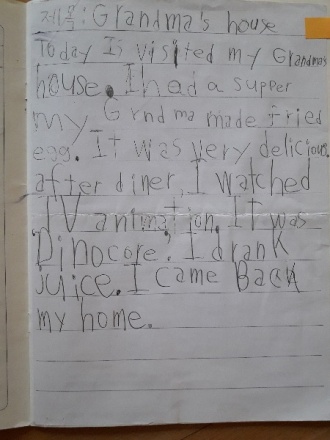 제목: Grandma's house
Today Is visited my Grandma's
house. I had a supper
my Grndma made fried
egg. It was very delicious.
after diner, I watched
TV animation. It was
Dinocore. I drank
juice. I came Back
my home.